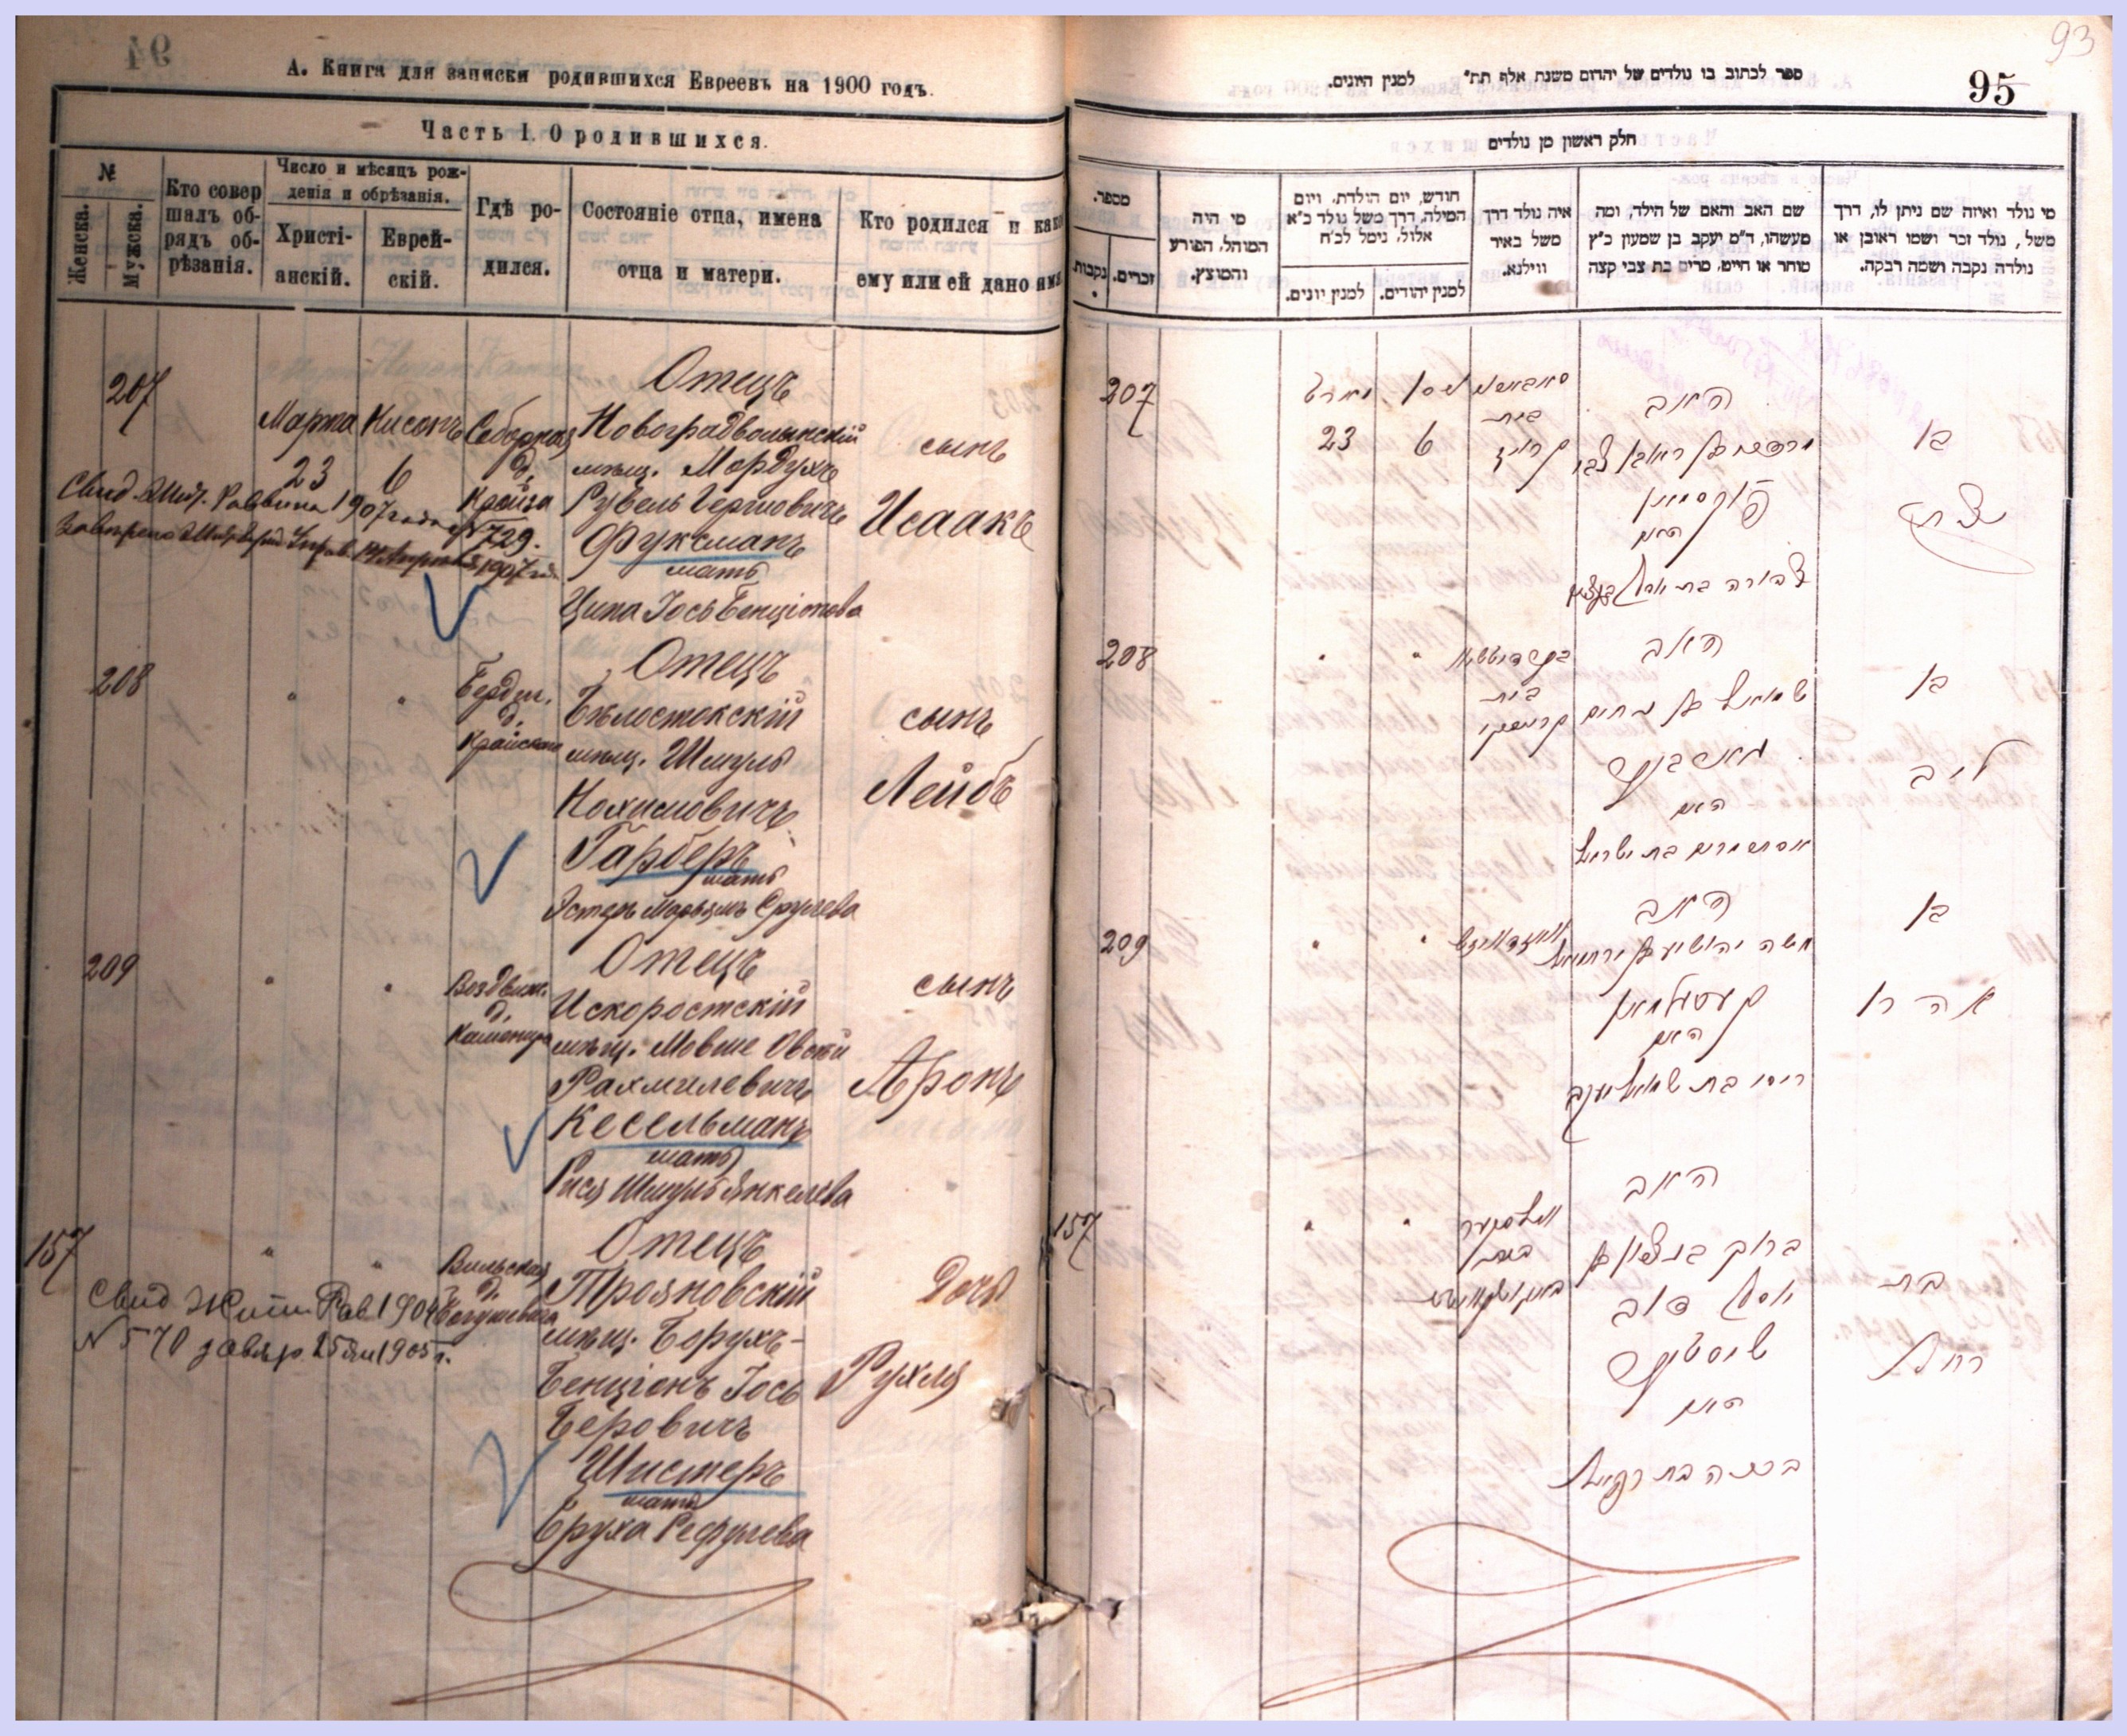 А. Книга для записки родившихся Евреевъ на 1900 годъ.
Часть I. О родившихся.
№
Женска.
Мужска.
Кто совершалъ обрядъ обрѣзанія.
Число и мѣсяцъ рожденія и обрѣзанія.
Христіанскій.
Еврейскій.
Гдѣ родился.
Состояніе отца, имена
отца и матери.
Кто родился и како
ему или ей дано имя
207
Марта
23
Нисонъ
6
Соборная
д.
Крайза
Отецъ
Новоградволынскій
мѣщ. Мордухъ
Рувель Гершовичъ
Фуксманъ
мать
Ципа Іось Бенціонова
сынъ
Исаакъ
Свид. Раввина 1907 года № 729.
208
"
"
Бердич.
д.
Отецъ
Бѣлостокскій
мѣщ. Шмуль
Нохимовичъ
Гарберъ
мать
Эстеръ Марьямъ Срулева
сынъ
Лейбъ
209
"
"
Воздвиж.
д.
Каменира
Отецъ
Искоростскій
мѣщ. Мовше Овсѣй
Рахмилевичъ
Кесельманъ
мать
Рися Шмуль Янкелева
сынъ
Аронъ
157
"
"
Вильская
д.
Отецъ
Трояновскій
мѣщ. Борухъ-
Бенціонъ Іось
Беровичъ
Шистеръ
мать
Бруха Рефулева
Дочь
Рухля
Свид Жит. Рав 1904
№ 570 1905 г.
93
95
ספר לכתוב בו נולדים של יהדום משנת אלף תת" למנין היונים.
חלק ראשון מן נולדים
מספר.
נקבות
זכרים.
מי היה
המוהל, הפורע
והמוצץ.
חודש, יום הולדת, ויום
המילה, דרך משל נולד כ"א
אלול, נימל לכ"ח
למנין יונים.
למנין יהודים.
איה נולד דרך
משל באיר
ווילנא.
שם האב והאם של הילד, ומה
מעשהו, ד"מ יעקב בן שמעון כ"ץ
סוחר או חייט, מרים בת צבי קצה
מי נולד ואיזה שם ניתן לו, דרך
משל, נולד זכר ושמו ראובן או
נולדה נקבה ושמה רבקה.
207
מארט
23
ניסן
6
בית
האב
מרדכי בן ראובן צבי
פוקסמאן
האם
צפורה בת יוסף בן ציון
בן
יצחק
208
"
"
בית
האב
שמואל בן נחום
גארבער
האם
אסתר מרים בת ישראל
בן
ליב
209
"
"
האב
משה יהושיע בן ירחמיאל
קעסעלמאן
האם
ריסי בת שמואל יעקב
בן
אהרן
157
"
"
האב
ברוך בן ציון בן
יוסף דוב
שיסטער
האם
ברכה בת רפאל
בת
רחל